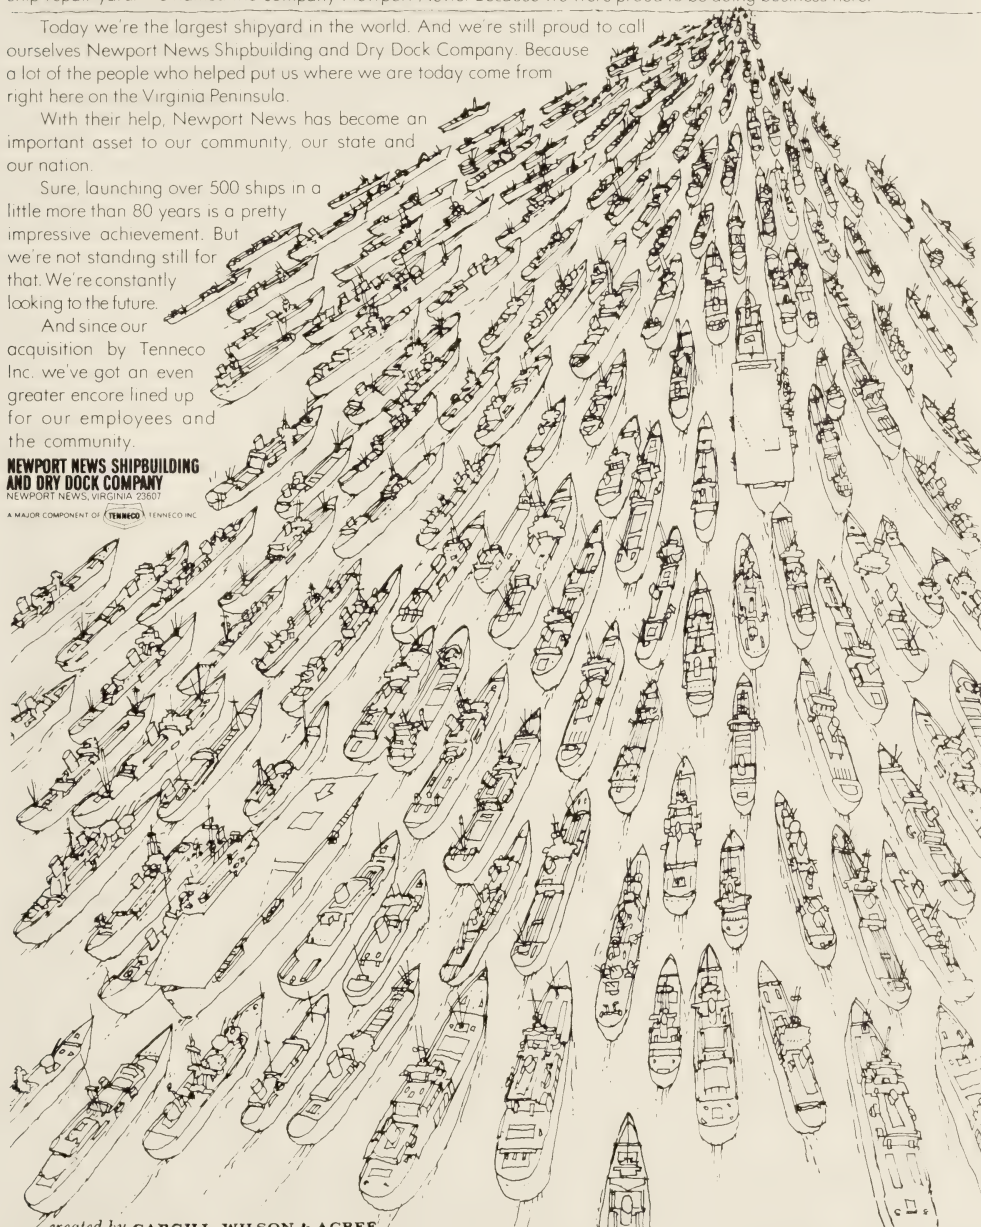 Today we're the largest shipyard in the world. And we're still proud to call
ourselves Newport News Shipbuilding and Dry Dock Company. Because
a lot of the people who helped put us where we are today come from
right here on the Virginia Peninsula.
With their help, Newport News has become an
important asset to our community, our state and
our nation.
Sure, launching over 500 ships in a
little more than 80 years is a pretty
impressive achievement. But
we're not standing still for
that. We're constantly
looking to the future.
And since our
acquisition by Tenneco
Inc. we've got an even
greater encore lined up
for our employees and
the community.
NEWPORT NEWS SHIPBUILDING
AND DRY DOCK COMPANY
NEWPORT NEWS, VIRGINIA 23607
A MAJOR COMPONENT OF TENNECO TENNECO INC
created by CARGILL, WILSON & ACREE